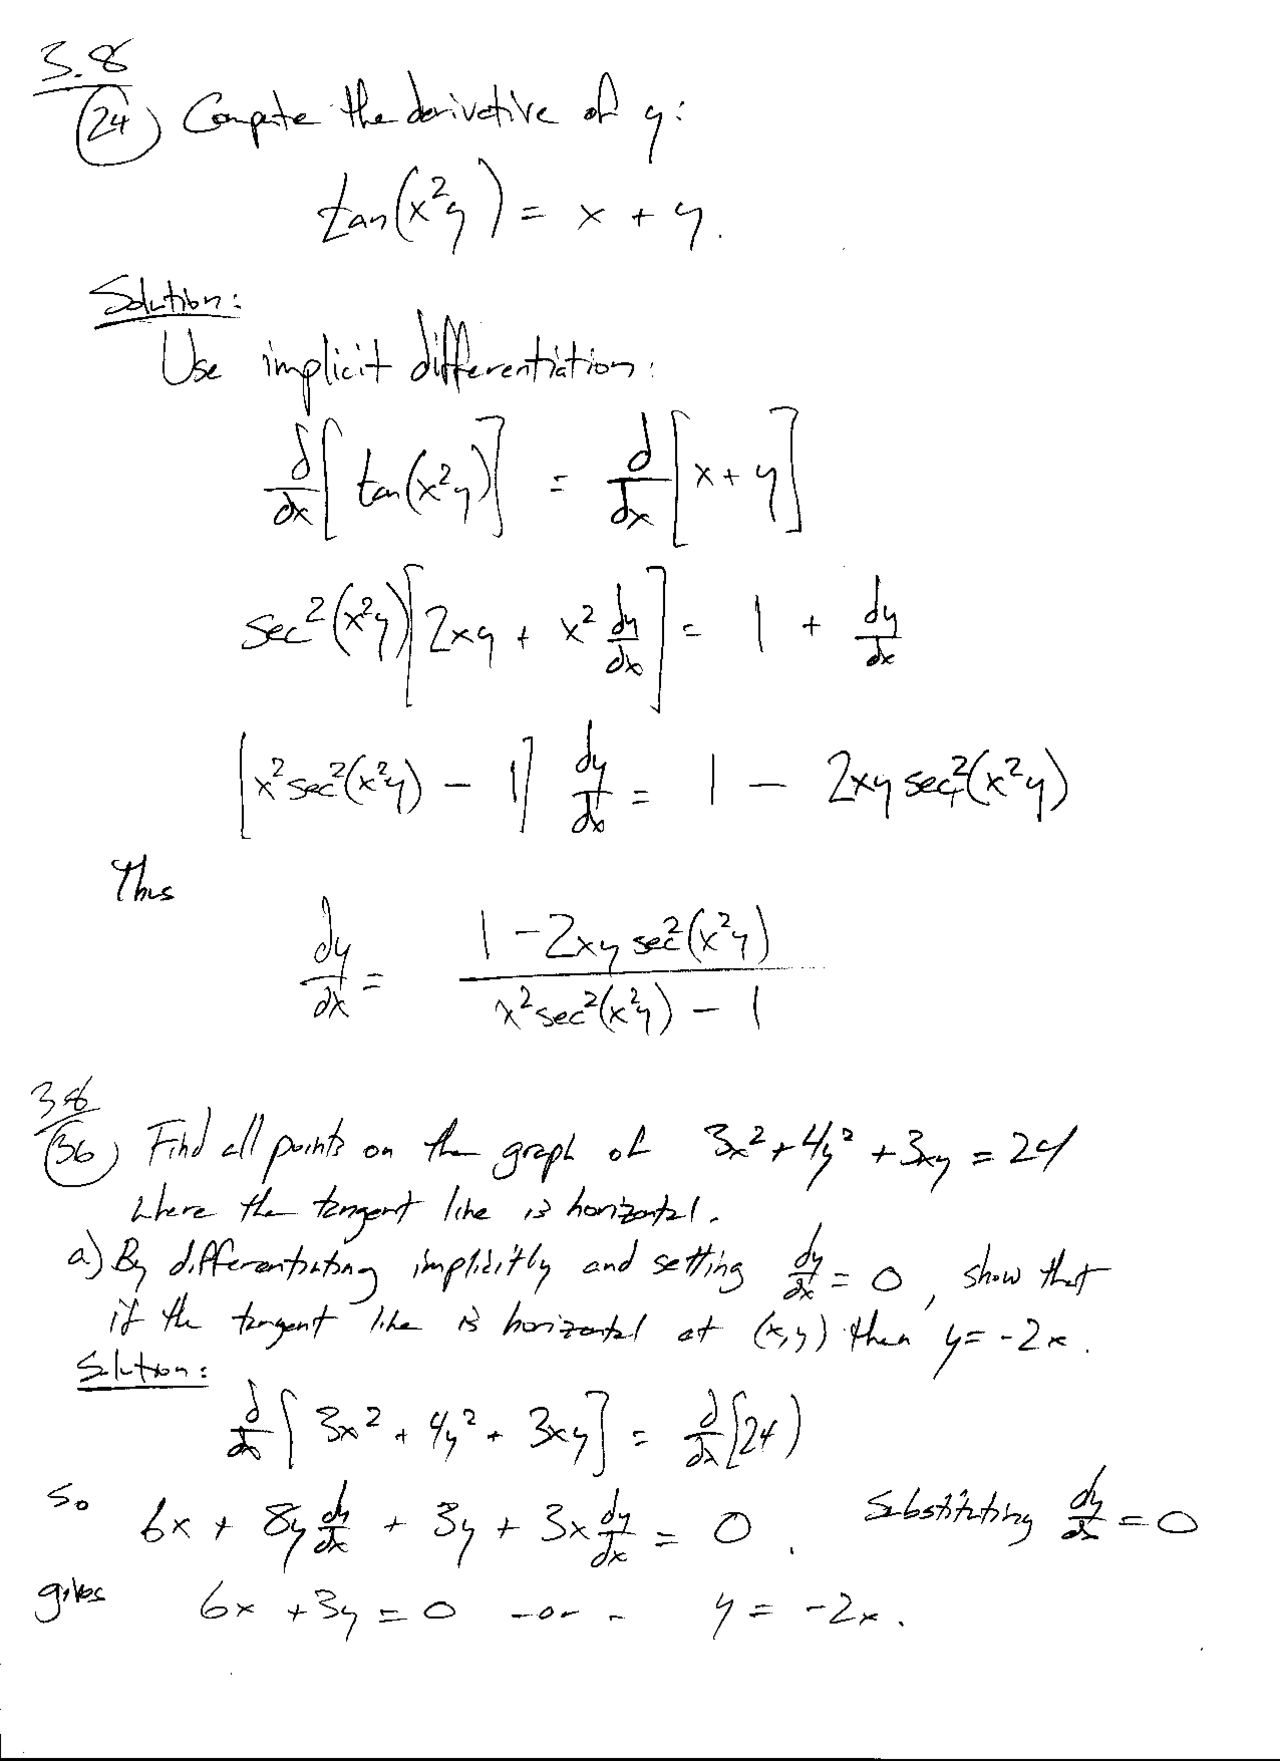 3.8
24) Compute the derivative of y:
tan(x²y) = x + y.
Solution:
Use implicit differentiation:
d/dx [tan(x²y)] = d/dx [x + y]
sec²(x²y)[2xy + x² dy/dx] = 1 + dy/dx
[x² sec²(x²y) - 1] dy/dx = 1 - 2xy sec²(x²y)
Thus
dy/dx = (1 - 2xy sec²(x²y)) / (x² sec²(x²y) - 1)
3.8
36) Find all points on the graph of 3x² + 4y² + 3xy = 24
where the tangent line is horizontal.
a) By differentiating implicitly and setting dy/dx = 0, show that
if the tangent line is horizontal at (x,y) then y = -2x.
Solution:
d/dx [3x² + 4y² + 3xy] = d/dx [24]
So 6x + 8y dy/dx + 3y + 3x dy/dx = 0. Substituting dy/dx = 0
gives 6x + 3y = 0 -or- y = -2x.